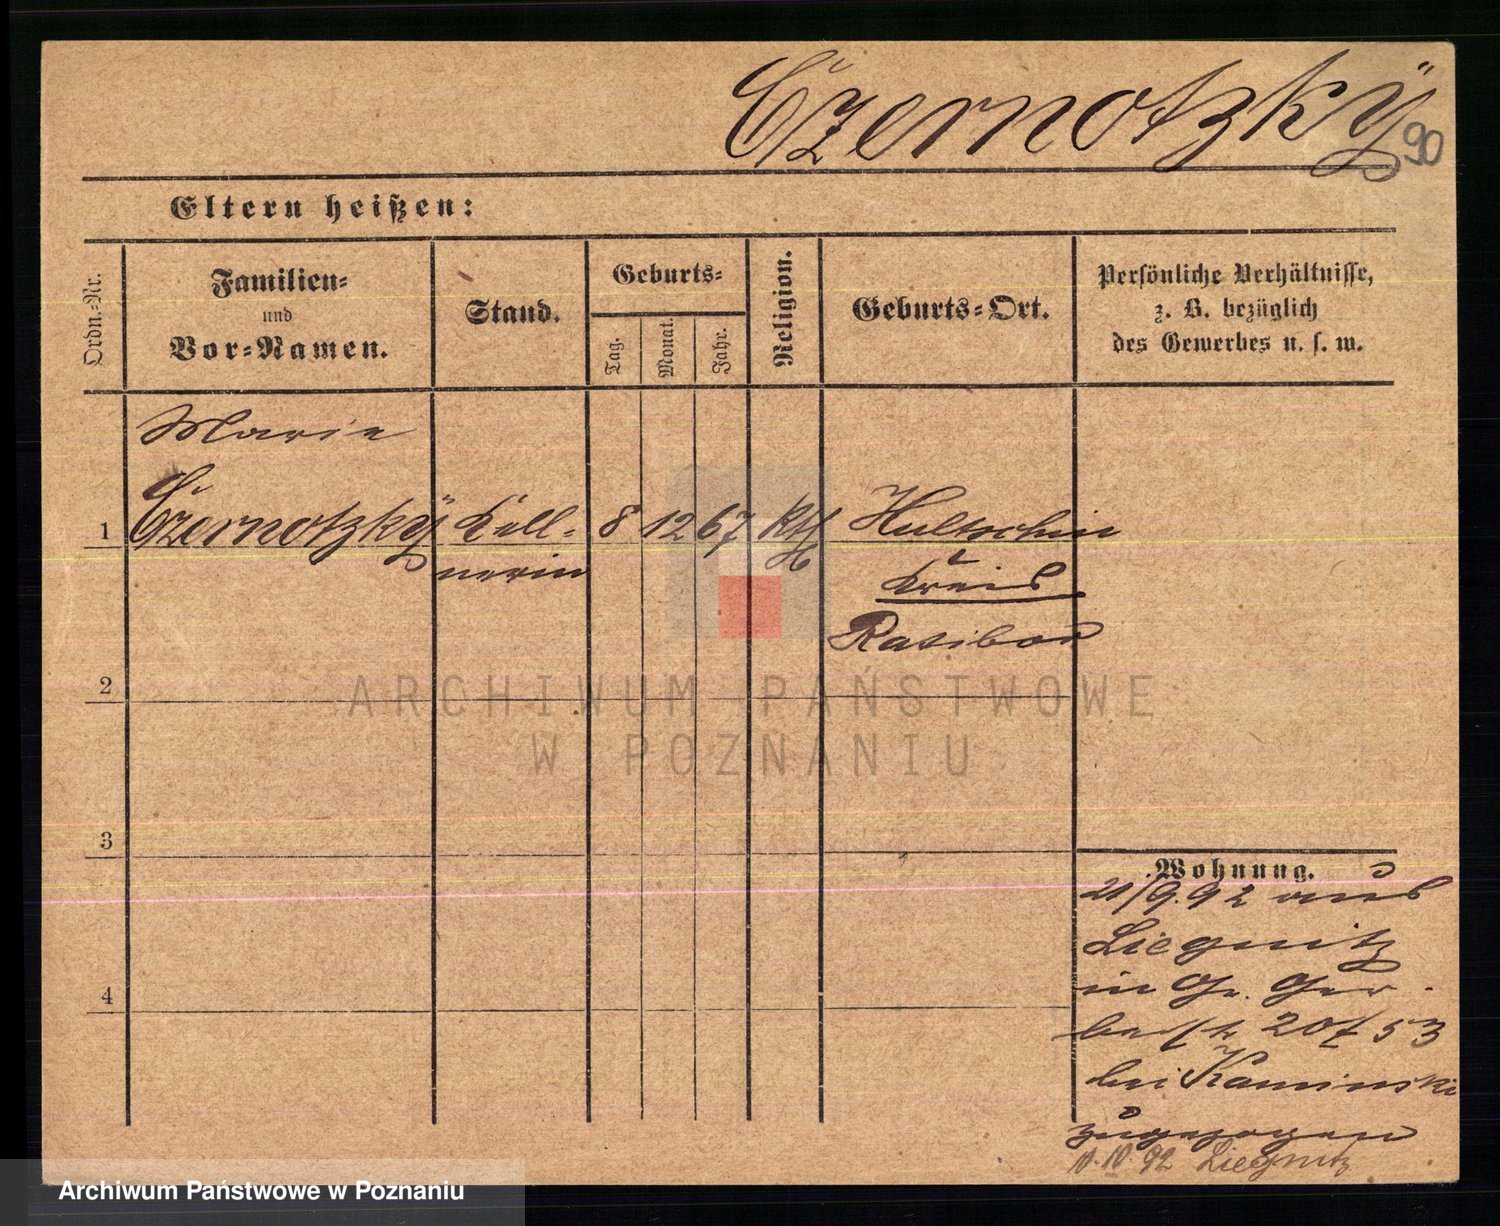 Czernotzkÿ
90
Eltern heißen:
Ordn.-Nr.
Familien-
und
Vor-Namen.
Stand.
Geburts-
Tag.
Monat.
Jahr.
Religion.
Geburts-Ort.
Persönliche Verhältnisse,
z. B. bezüglich
des Gewerbes u. s. w.
Marie
1 Czernotzkÿ Kell- 8 12 67 kth Hultschin
nerin Kreis
Ratibor
2
3
4
Wohnung.
21/9.92 aus
Liegnitz
in Gr. Ger-
berstr 20/53
bei Kaminski
zugezogen
10.10.92 Liegnitz
ARCHIWUM PAŃSTWOWE
W POZNANIU
Archiwum Państwowe w Poznaniu